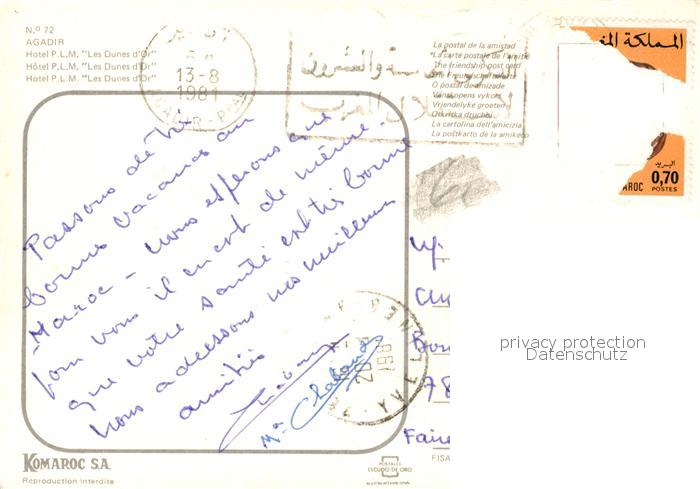 N.º 72
AGADIR
Hotel P.L.M. "Les Dunes d'Or"
Hôtel P.L.M. "Les Dunes d'Or"
Hotel P.L.M. "Les Dunes d'Or"
13-8
1981
La postal de la amistad
La carte postale de l'amitié
The friendship post card
Die Freundschaft
O postal de amizade
Vanskopens vykort
Vriendelyke groeten
Otkritka druchbi
La cartolina dell'amicizia
La poŝtkarto de la amikeco
المملكة المغ
البريد
0,70
MAROC POSTES
Passons de très
bonnes vacances au
Maroc - nous espérons que
pour vous il en est de même.
que votre santé est très bonne
nous adressons nos meilleures
amitiés
Chabaud
78
privacy protection
Datenschutz
KOMAROC S.A.
Reproduction interdite
POSTALES
ESCUDO DE ORO
FISA